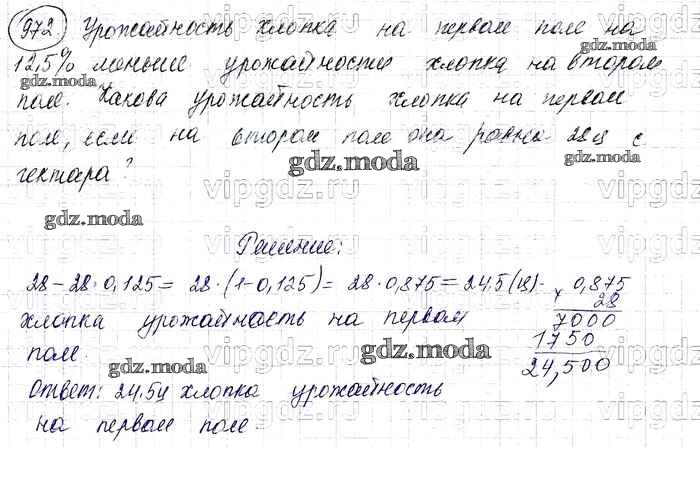 972. Урожайность хлопка на первом поле на
12,5% меньше урожайности хлопка на втором
поле. Какова урожайность хлопка на первом
поле, если на втором поле она равна 28ц с
гектара?
Решение:
28-28·0,125= 28·(1-0,125)= 28·0,875=24,5(ц)-
хлопка урожайность на первом
поле.
0,875
× 28
7000
1750
24,500
Ответ: 24,5ц хлопка урожайность
на первом поле.
gdz.moda
gdz.moda
gdz.moda
gdz.moda
gdz.moda
gdz.moda
vipgdz.ru